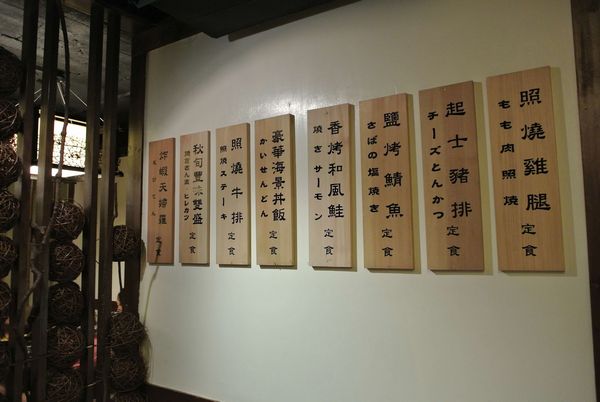 照燒雞腿定食
もも肉照燒
起士豬排定食
チーズとんかつ
鹽烤鯖魚定食
さばの塩焼き
香烤和風鮭定食
焼きサーモン
豪華海景丼飯定食
かいせんどん
照燒牛排定食
照焼ステーキ
秋旬豐味雙盛定食
ヒレカツ
炸蝦天婦羅定食
えびてん